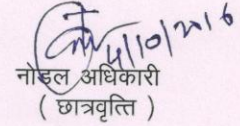 4/10/2016
नोडल अधिकारी
( छात्रवृत्ति )